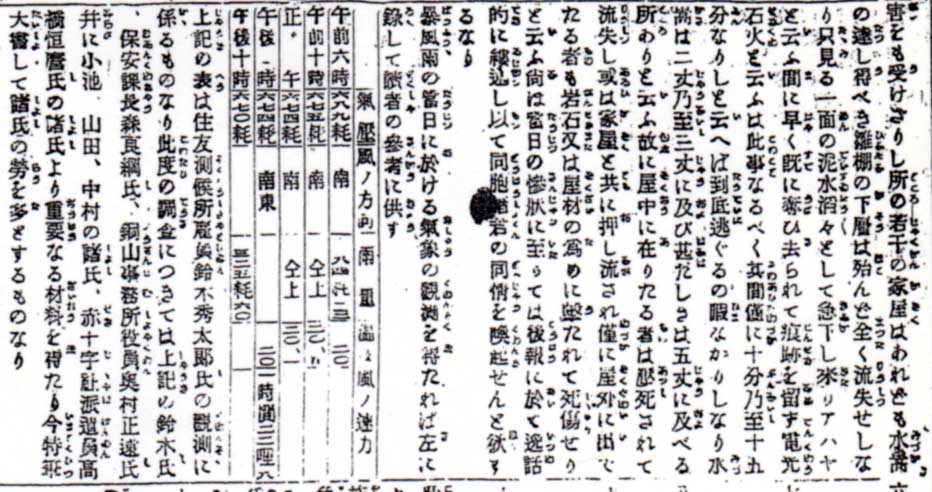 害をも受けざりし所の若干の家屋はあれども水嵩
の達し得べき雛棚の下層は殆んど全く流失せしな
り只見る一面の泥水滔々として急下し来りアハヤ
と云ふ間に早く既に奪ひ去られて痕跡を留ず電光
石火と云ふは此事なるべく其間僅に十分乃至十五
分なりしと云へば到底逃ぐるの暇なかりしなり水
嵩は二丈乃至三丈に及び甚だしきは五丈に及べる
所ありと云ふ故に屋中に在りたる者は壓死されて
流失し或は家屋と共に押し流され僅に屋外に出で
たる者も岩石又は屋材の為めに撃たれて死傷せり
と云ふ尚ほ當日の惨状に至りては後報に於て逸話
的に縷述し以て同胞諸君の同情を喚起せんと欲す
るなり
暴風雨の當日に於ける氣象の観測を得たれば左に
録して読者の參考に供す
氣壓 風ノ方向 雨量 温度 風ノ速力
午前六時 六六九耗 南
午前十時 六七五耗 南 仝上
正午 六七四耗 南 仝上
午後 時 六七四耗 南東
午後十時 六七〇耗
上記の表は住友測候所属員鈴木秀太郎氏の観測に
係るものなり此度の調査につきては上記の鈴木氏
、保安課長森良綱氏、銅山事務所役員奥村正遠氏
并に小池、山田、中村の諸氏、赤十字社派遣員高
橋恒麿氏の諸氏より重要なる材料を得たり今特班
大書して諸氏の勞を多とするものなり